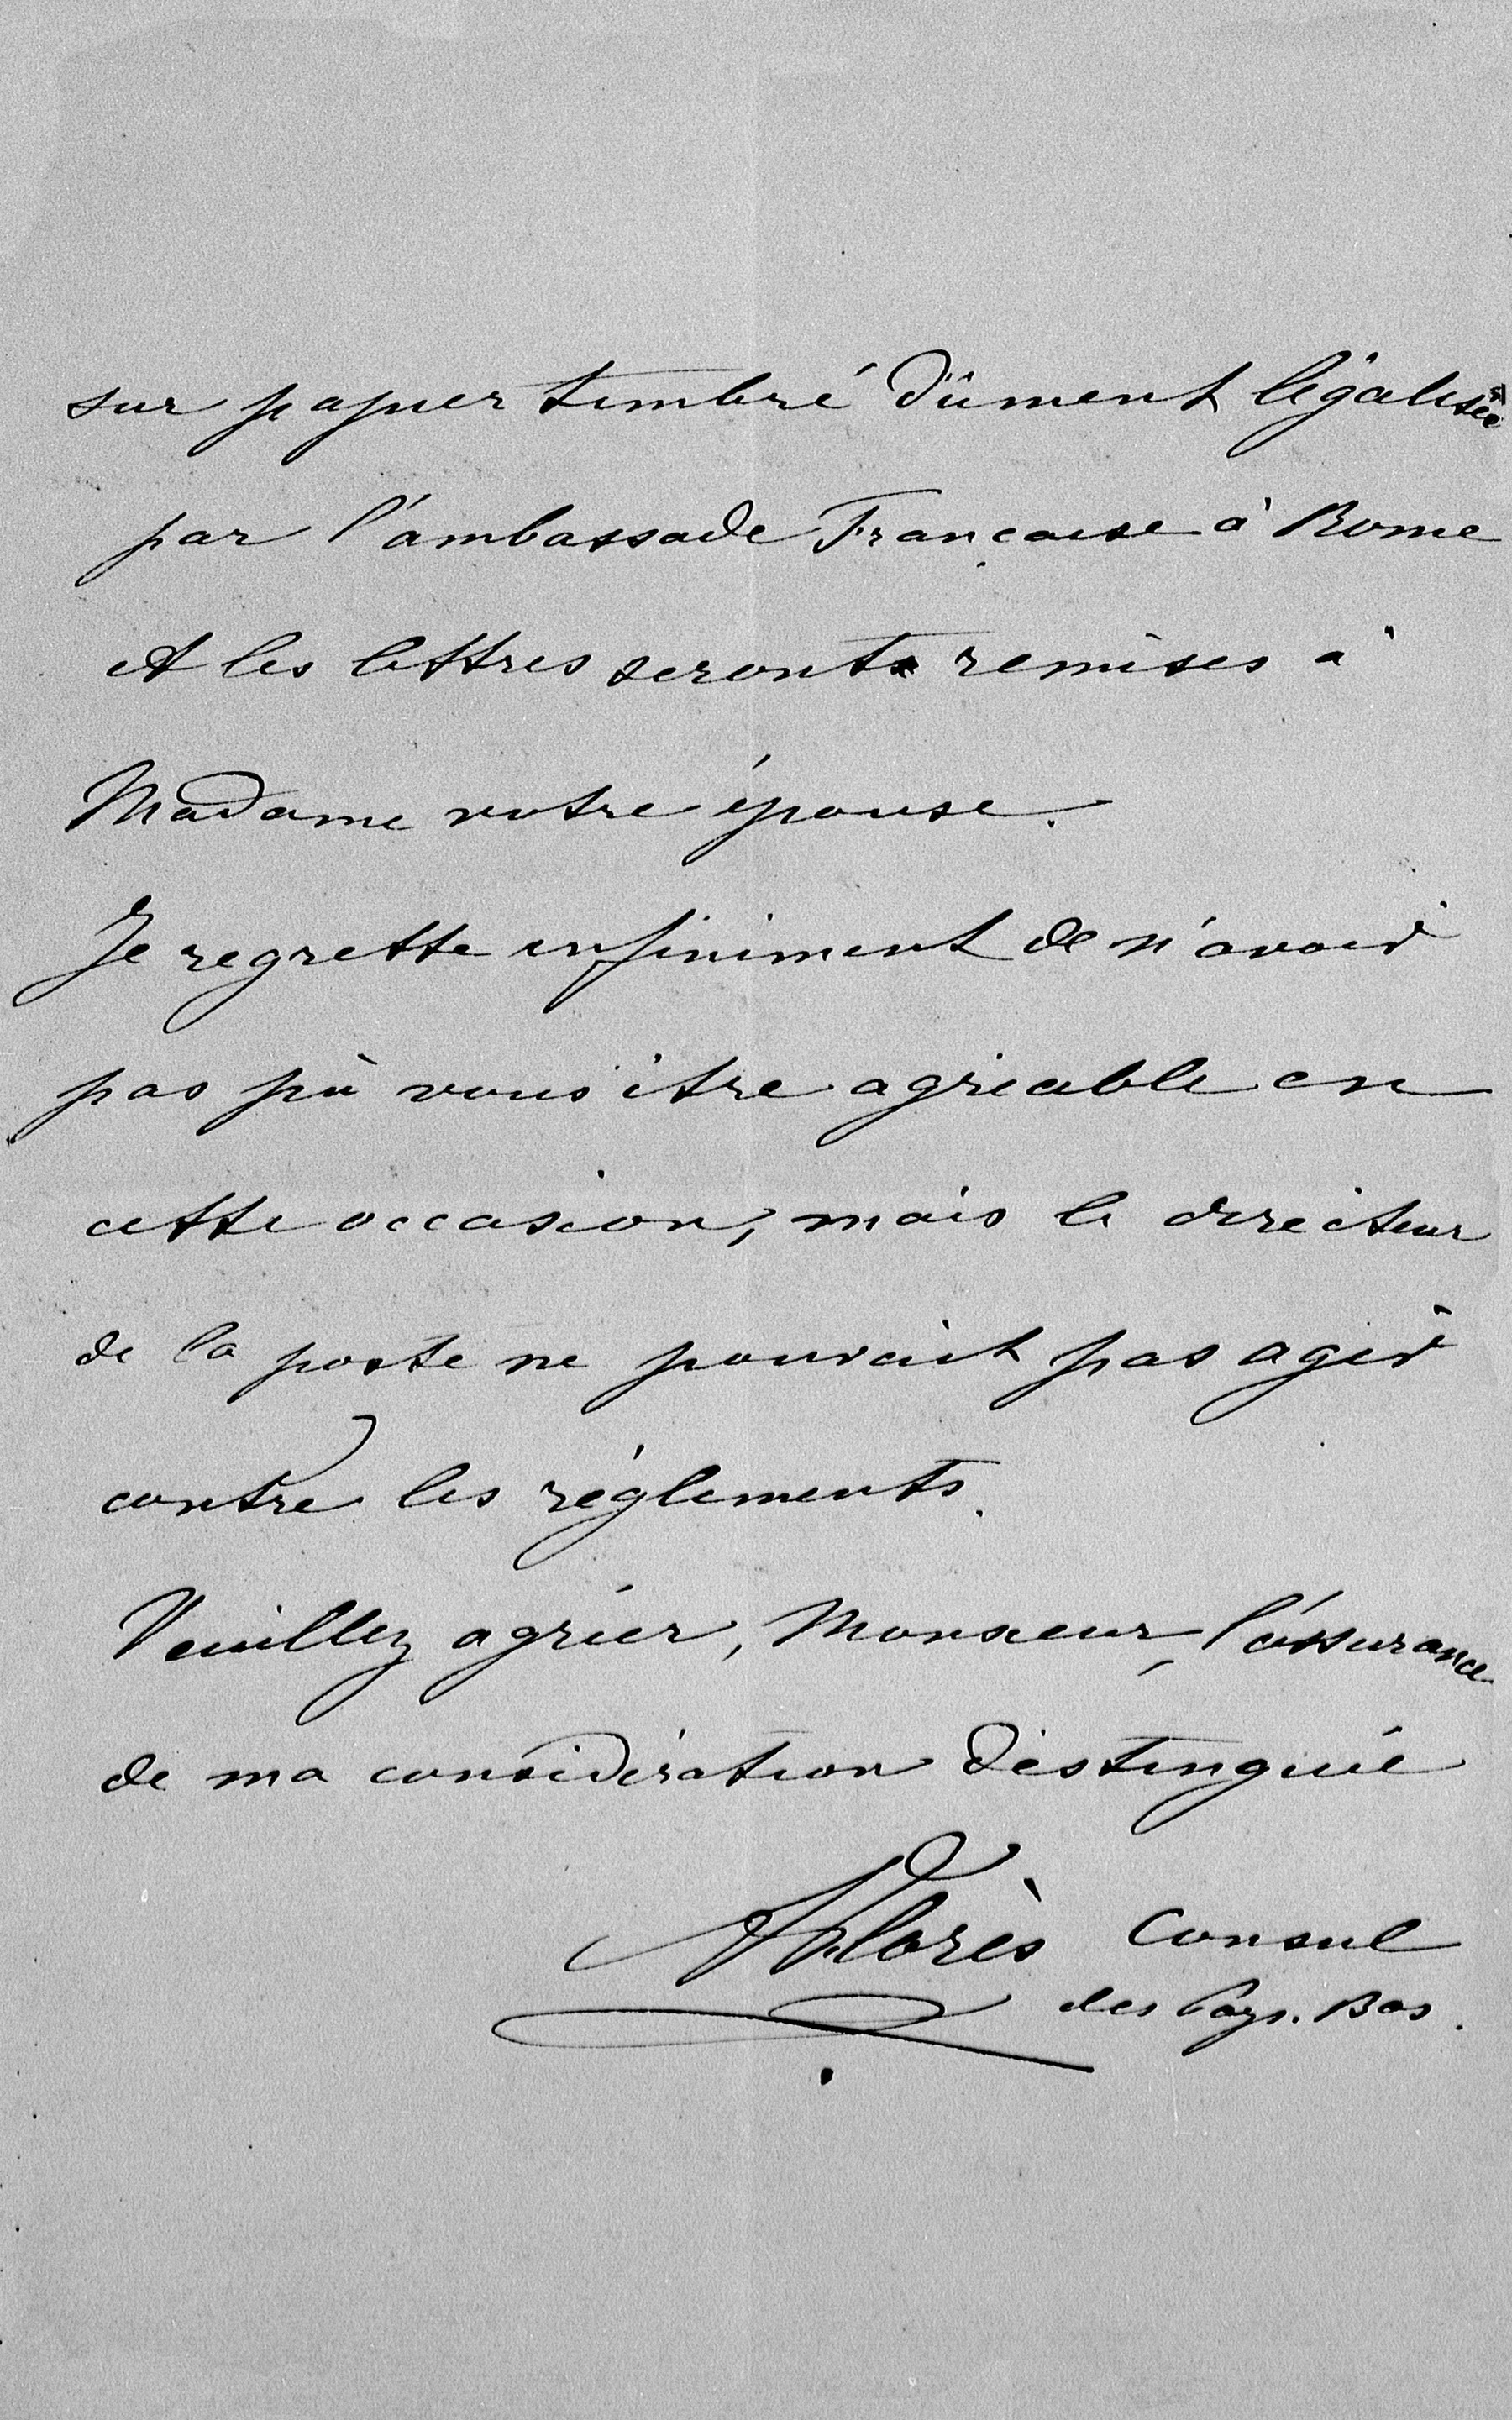 sur papier timbré dûment légalisée
par l'ambassade Française à Rome
et les lettres seront remises à
Madame votre épouse.
Je regrette infiniment de n'avoir
pas pù vous être agréable en
cette occasion, mais le directeur
de la poste ne pouvait pas agir
contre les réglements.
Veuillez agréer, Monsieur, l'assurance
de ma considération distinguée
Consul
des Pays-Bas.